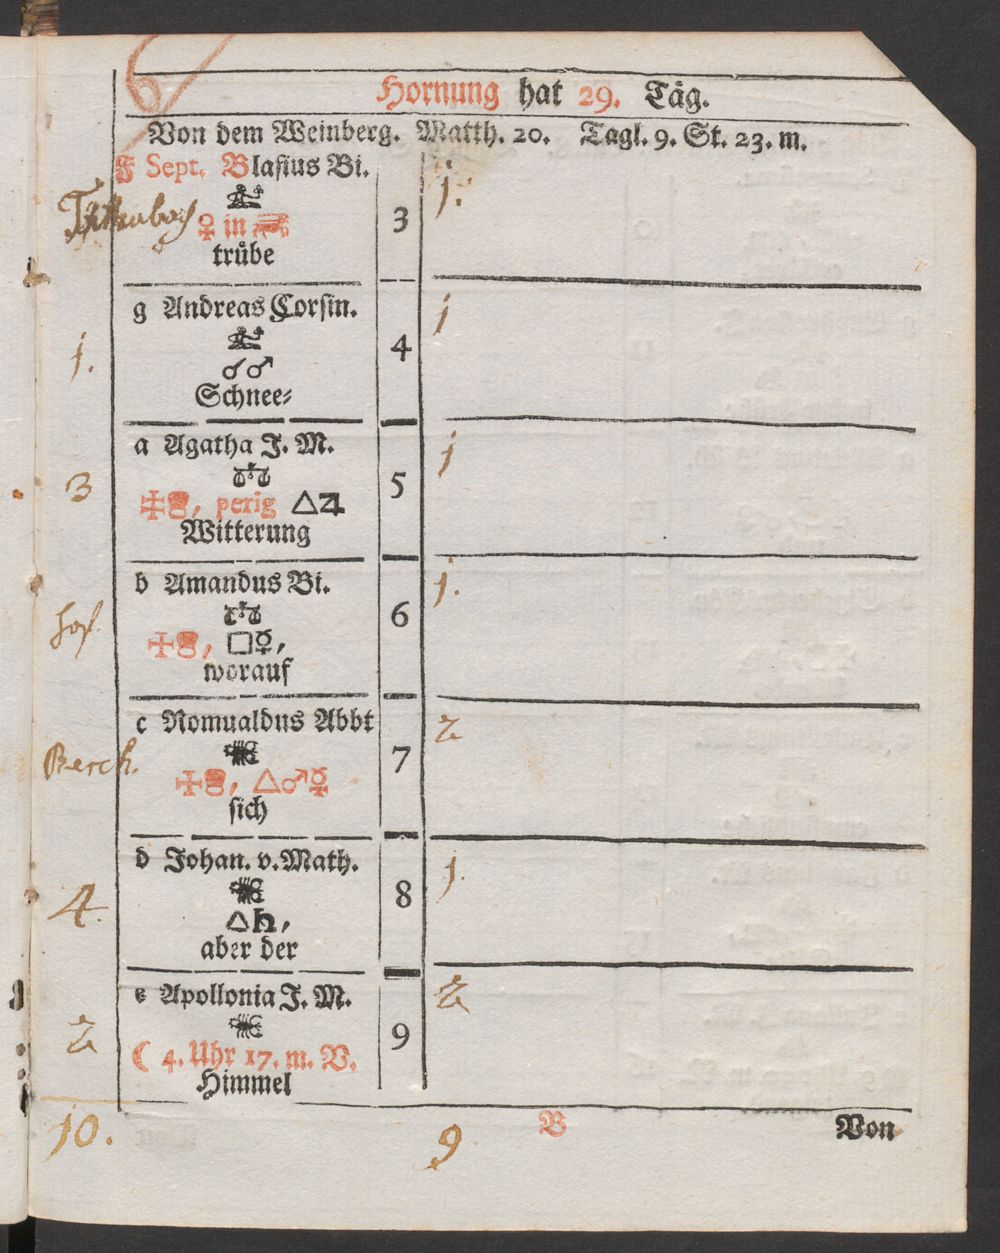 6
Hornung hat 29. Tåg.
Von dem Weinberg. Matth. 20. Tagl. 9. St. 23. m.
F Sept. Blasius Bi.
♀ in
trůbe
3
1.
g Andreas Corsin.
☌♂
Schnee⸗
4
1
1.
a Agatha J. M.
perig △♃
Witterung
5
1
3
b Amandus Bi.
□☿,
worauf
6
1.
hof.
c Romualdus Abbt
△♂☿
sich
7
2
Berch.
d Johan. v. Math.
△♄,
aber der
8
1.
4.
e Apollonia J. M.
☾ 4. Uhr 17. m. V.
Himmel
9
2
2
10.
9
B
Von